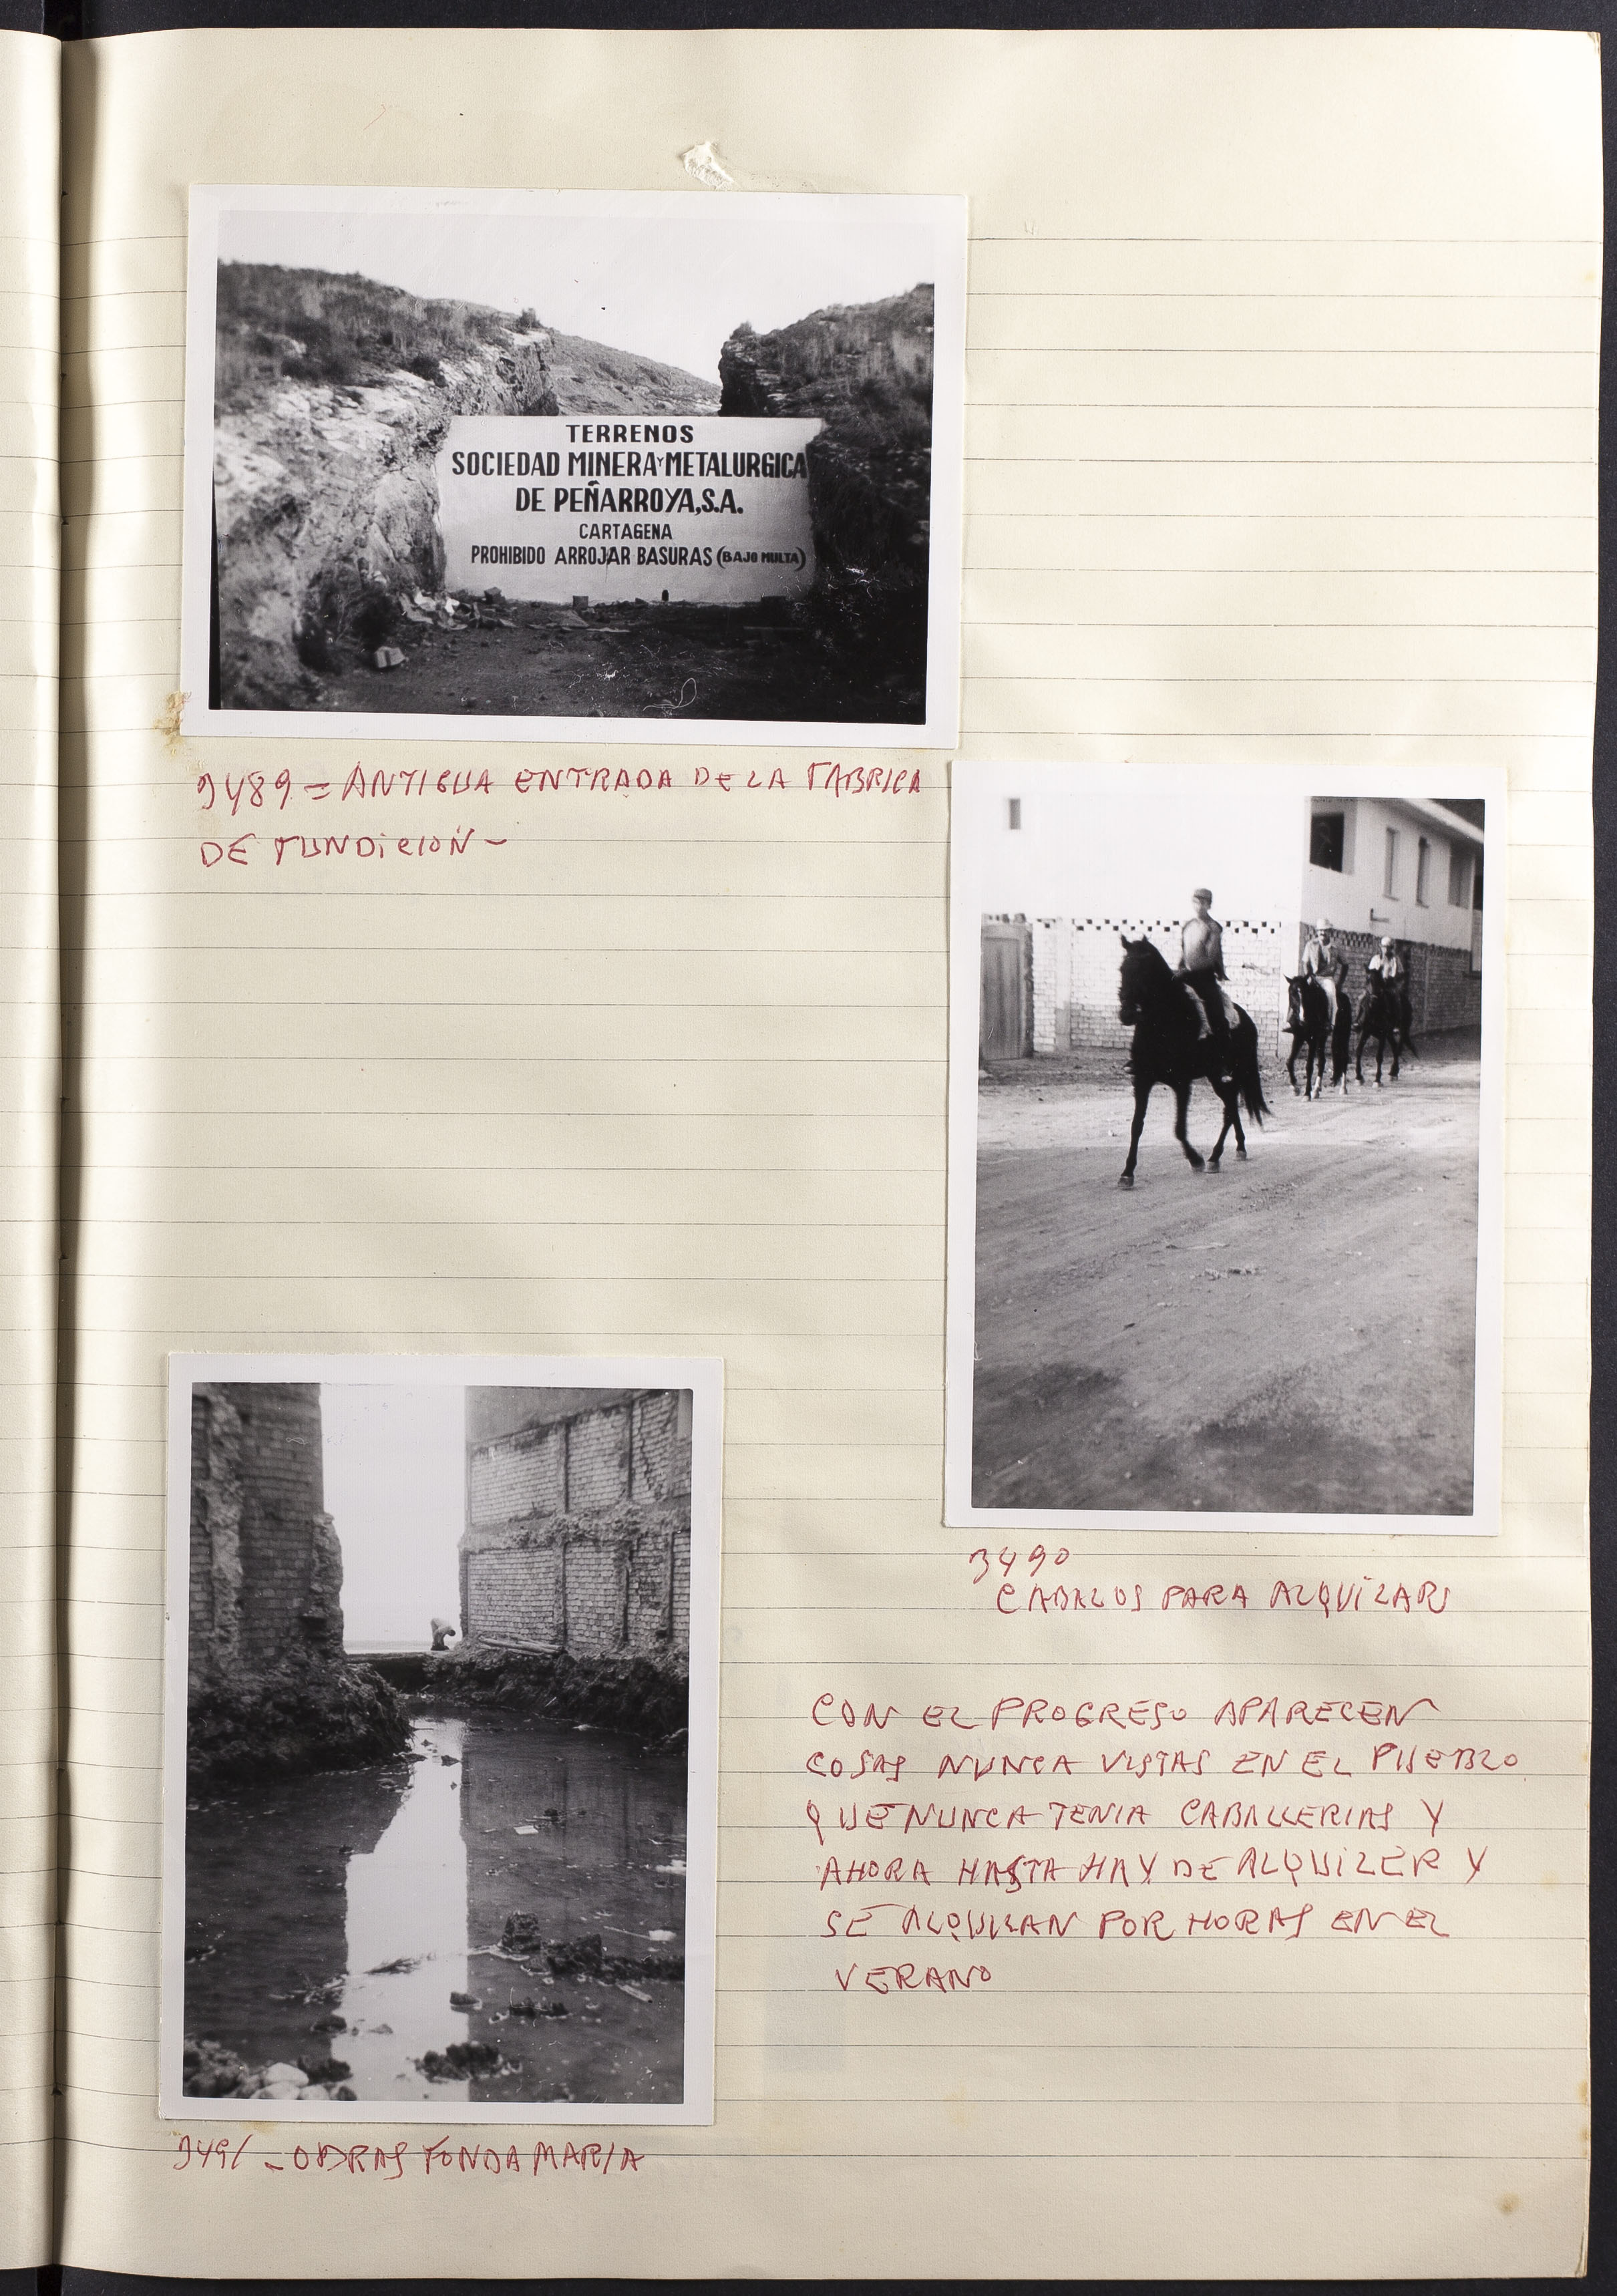 TERRENOS
SOCIEDAD MINERA Y METALURGICA
DE PEÑARROYA, S.A.
CARTAGENA
PROHIBIDO ARROJAR BASURAS (BAJO MULTA)
3489 = ANTIGUA ENTRADA DE LA FABRICA
DE FUNDICIÓN -
3490
CABALLOS PARA ALQUILAR
CON EL PROGRESO APARECEN
COSAS NUNCA VISTAS EN EL PUEBLO
QUE NUNCA TENIA CABALLERIAS Y
AHORA HASTA HAY DE ALQUILER Y
SE ALQUILAN POR HORAS EN EL
VERANO
3491 - OBRAS FONDA MARIA